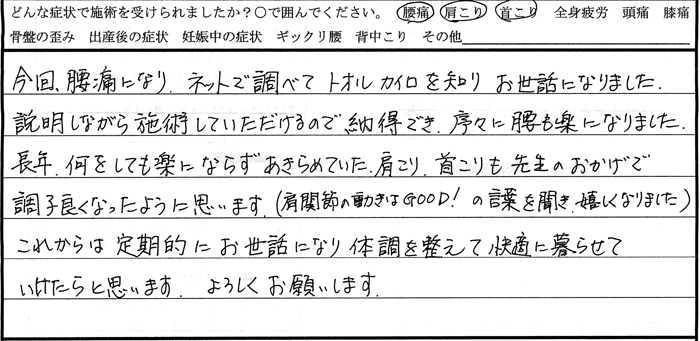 どんな症状で施術を受けられましたか？〇で囲んでください。 腰痛 肩こり 首こり 全身疲労 頭痛 膝痛
骨盤の歪み 出産後の症状 妊娠中の症状 ギックリ腰 背中こり その他
今回、腰痛になり、ネットで調べてトオルカイロを知りお世話になりました。
説明しながら施術していただけるので納得でき、序々に腰も楽になりました。
長年、何をしても楽にならずあきらめていた、肩こり、首こりも先生のおかげで
調子良くなったように思います。(肩関節の動きはGOOD！の言葉を聞き、嬉しくなりました)
これからは定期的にお世話になり体調を整えて快適に暮らせて
いけたらと思います。よろしくお願いします。